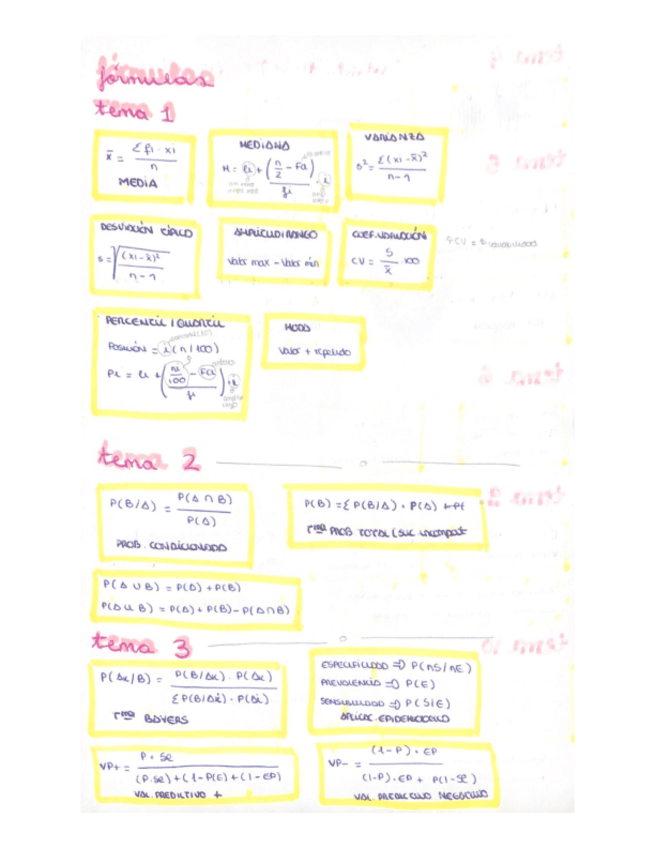 fórmulas
tema 1
x̄ = Σ fi · xi / n
MEDIA
MEDIANA
M = li + (n/2 − Fa / fi) · i
VARIANZA
s² = Σ(xi - x̄)² / n-1
DESVIACIÓN TÍPICA
s = √((xi - x̄)² / n-1)
AMPLITUD/RANGO
Valor max - Valor mín
COEF. VARIACIÓN
CV = S / x̄ · 100
↑CV = + variabilidad
PERCENTIL / CUANTIL
Posición = i (n/100)
Pi = li + (ni/100 − Fa / fi) · i
MODA
Valor + repetido
tema 2
P(B/A) = P(A ∩ B) / P(A)
PROB. CONDICIONADA
P(B) = Σ P(B/A) · P(A)
Tma PROB TOTAL (suc incompat
P(A ∪ B) = P(A) + P(B)
P(A ∪ B) = P(A) + P(B) - P(A∩B)
tema 3
P(Ai/B) = P(B/Ai) · P(Ai) / Σ P(B/Ai) · P(Ai)
Tma BAYERS
ESPECIFICIDAD => P(nS/nE)
PREVALENCIA => P(E)
SENSIBILIDAD => P(S/E)
APLICAC. EPIDEMIOLOGÍA
VP+ = P · Se / (P·Se) + (1-P(E) + (1-EP)
VAL. PREDICTIVO +
VP- = (1-P) · EP / (1-P) · EP + P(1-SE)
VAL. PREDICTIVO NEGATIVO